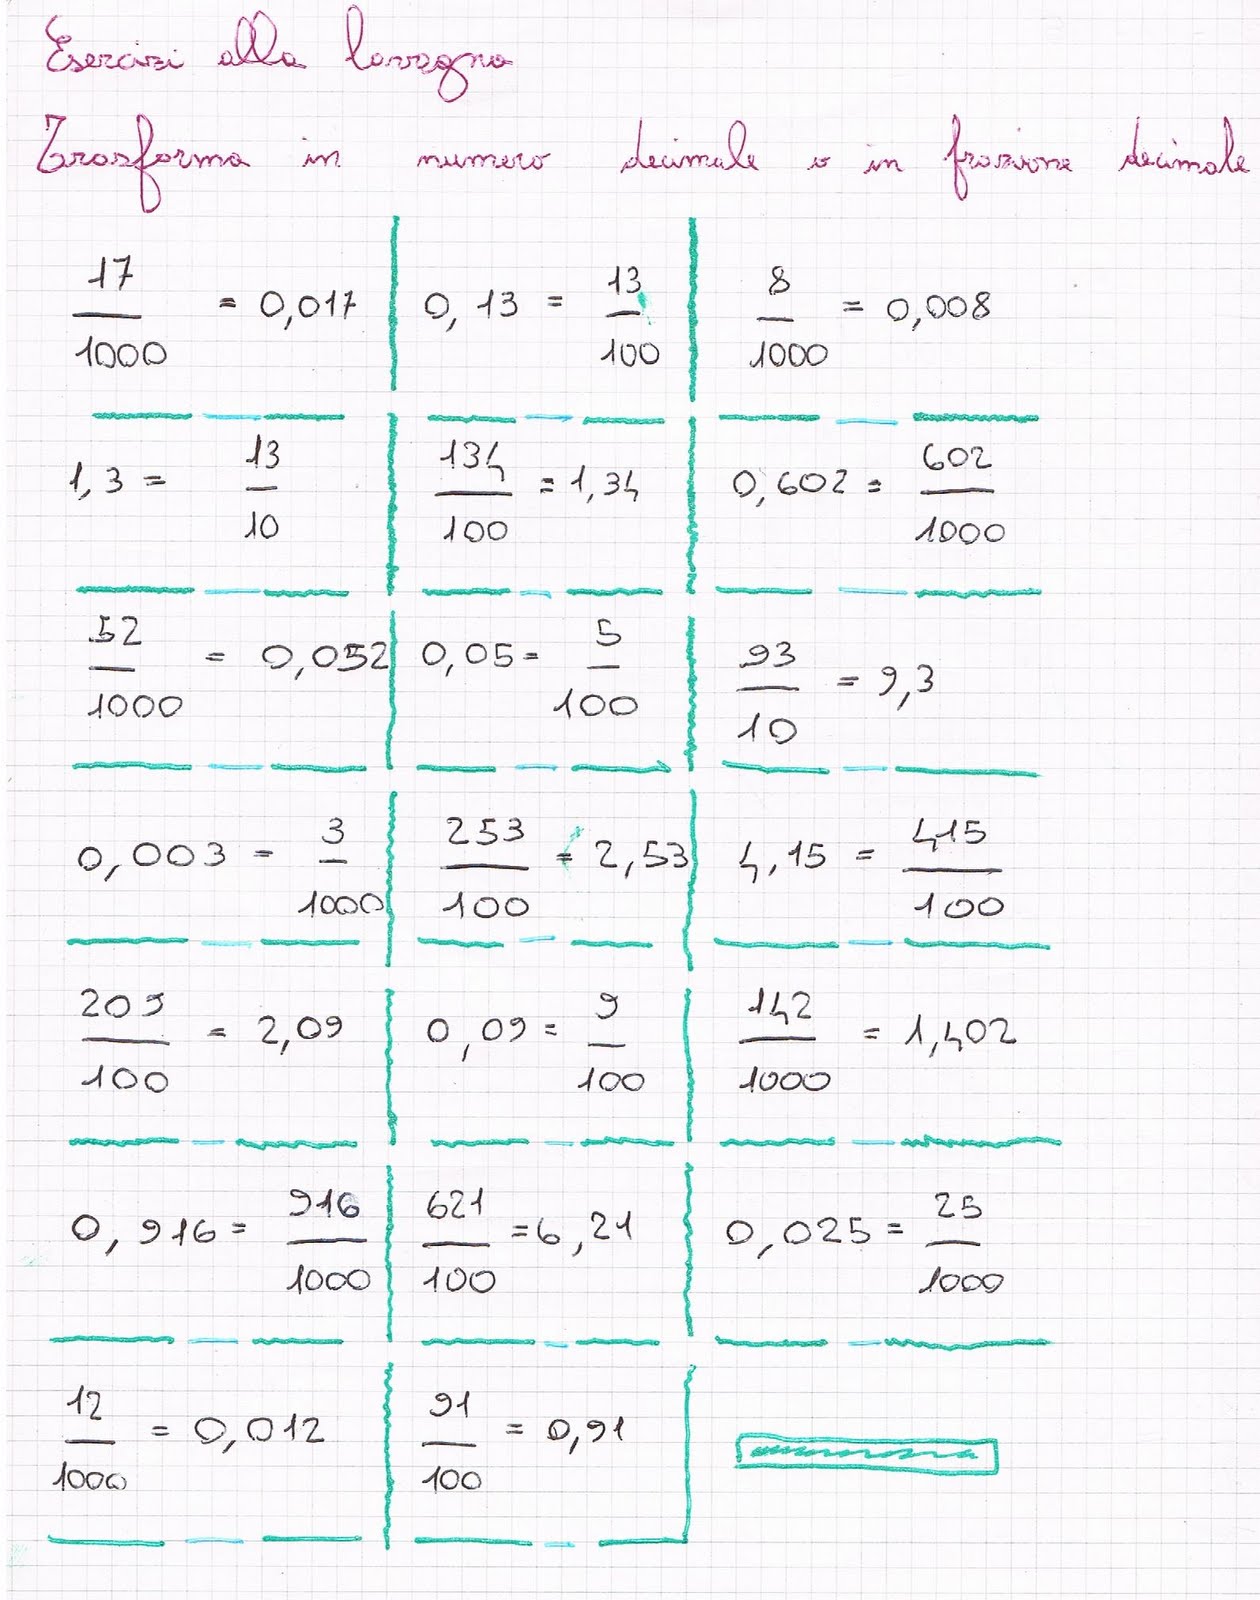 Esercizi alla lavagna
Trasforma in numero decimale o in frazione decimale
17/1000 = 0,017
0,13 = 13/100
8/1000 = 0,008
1,3 = 13/10
134/100 = 1,34
0,602 = 602/1000
52/1000 = 0,052
0,05 = 5/100
93/10 = 9,3
0,003 = 3/1000
253/100 = 2,53
4,15 = 415/100
209/100 = 2,09
0,09 = 9/100
142/1000 = 1,402
0,916 = 916/1000
621/100 = 6,21
0,025 = 25/1000
12/1000 = 0,012
91/100 = 0,91